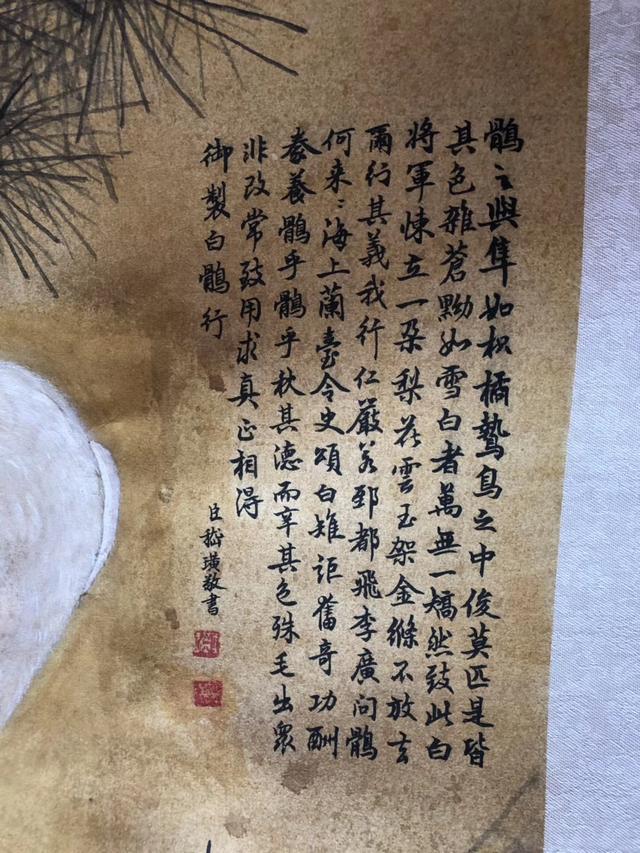 鶻之與隼如枳橘鷙鳥之中俊莫匹是皆
其色雜蒼黝如雪白者萬無一矯然致此白
將軍悚立一朵梨花雲玉架金絛不放去
爾行其義我行仁嚴若郅都飛李廣問鶻
何来〻海上蘭臺令史頌白雉詎奮奇功酬
豢養鶻乎鶻乎秋其德而辛其色殊毛出眾
非改常致用求真正相得
御製白鶻行
臣嵇璜敬書